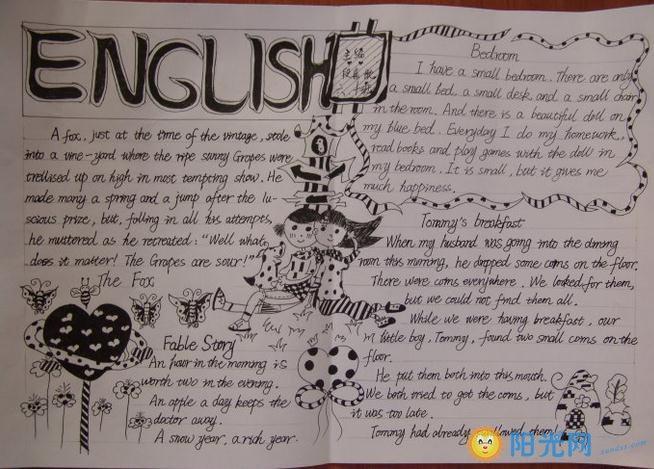 ENGLISH
主编
A fox, just at the time of the vintage, stole
into a vine-yard where the ripe sunny Grapes were
trellised up on high in most tempting show. He
made many a spring and a jump after the lu-
scious prize, but, falling in all his attempts,
he muttered as he retreated: "Well what
does it matter! The Grapes are sour!"
The Fox
Fable Story
An hour in the morning is
worth two in the evening.
An apple a day keeps the
doctor away.
A snow year, a rich year.
Bedroom
I have a small bedroom. There are only
a small bed, a small desk and a small chair
in the room. And there is a beautiful doll on
my blue bed. Everyday I do my homework,
read books and play games with the doll in
my bedroom. It is small, but it gives me
much happiness.
Tommy's breakfast
When my husband was going into the dinning
room this morning, he dropped some coins on the floor.
There were coins everywhere. We looked for them,
but we could not find them all.
While we were having breakfast, our
little boy, Tommy, found two small coins on the
floor.
He put them both into his mouth.
We both tried to get the coins, but
it was too late.
Tommy had already swallowed them!
阳光网
sundxs.com